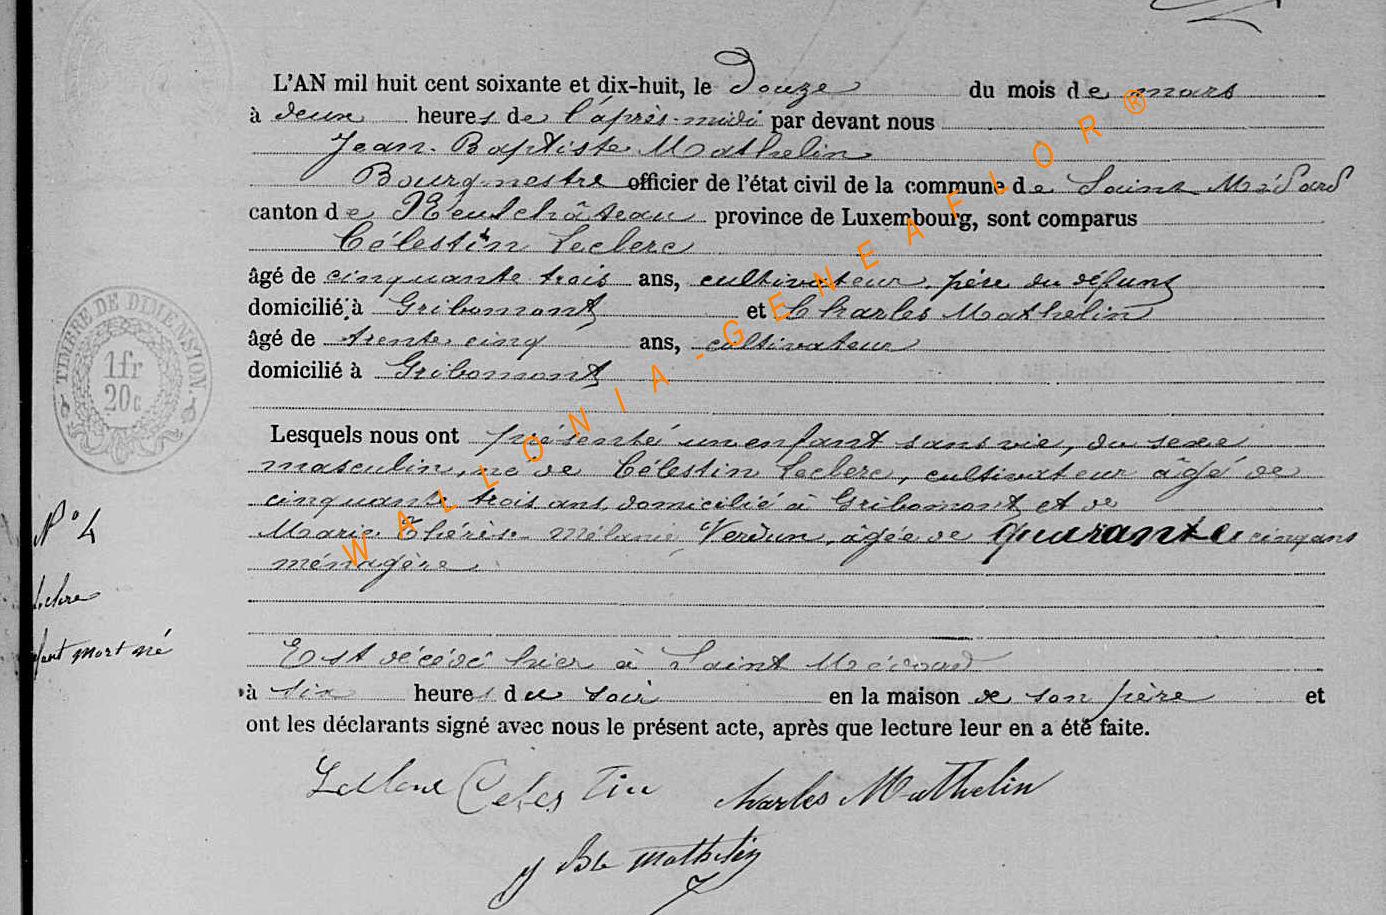 L'AN mil huit cent soixante et dix-huit, le Douze du mois de mars
à deux heures de l'après-midi par devant nous
Jean-Baptiste Mathelin
Bourgmestre officier de l'état civil de la commune de Saint Médard
canton de Neufchâteau province de Luxembourg, sont comparus
Célestin Leclerc
âgé de cinquante trois ans, cultivateur, père du défunt
domicilié à Gribomont et Charles Mathelin
âgé de trente cinq ans, cultivateur
domicilié à Gribomont
Lesquels nous ont présenté un enfant sans vie, du sexe
masculin, né de Célestin Leclerc, cultivateur âgé de
cinquante trois ans, domicilié à Gribomont et de
Marie Thérèse Mélanie Verdun, âgée de quarante cinq ans
ménagère
Est décédé hier à Saint Médard
à six heures du soir en la maison de son père et
ont les déclarants signé avec nous le présent acte, après que lecture leur en a été faite.
Leclerc Celestin Charles Mathelin
J Bte Mathelin
N° 4
mort né
TIMBRE DE DIMENSION
1fr
20c
WALLONIA-GENEAFLOR®